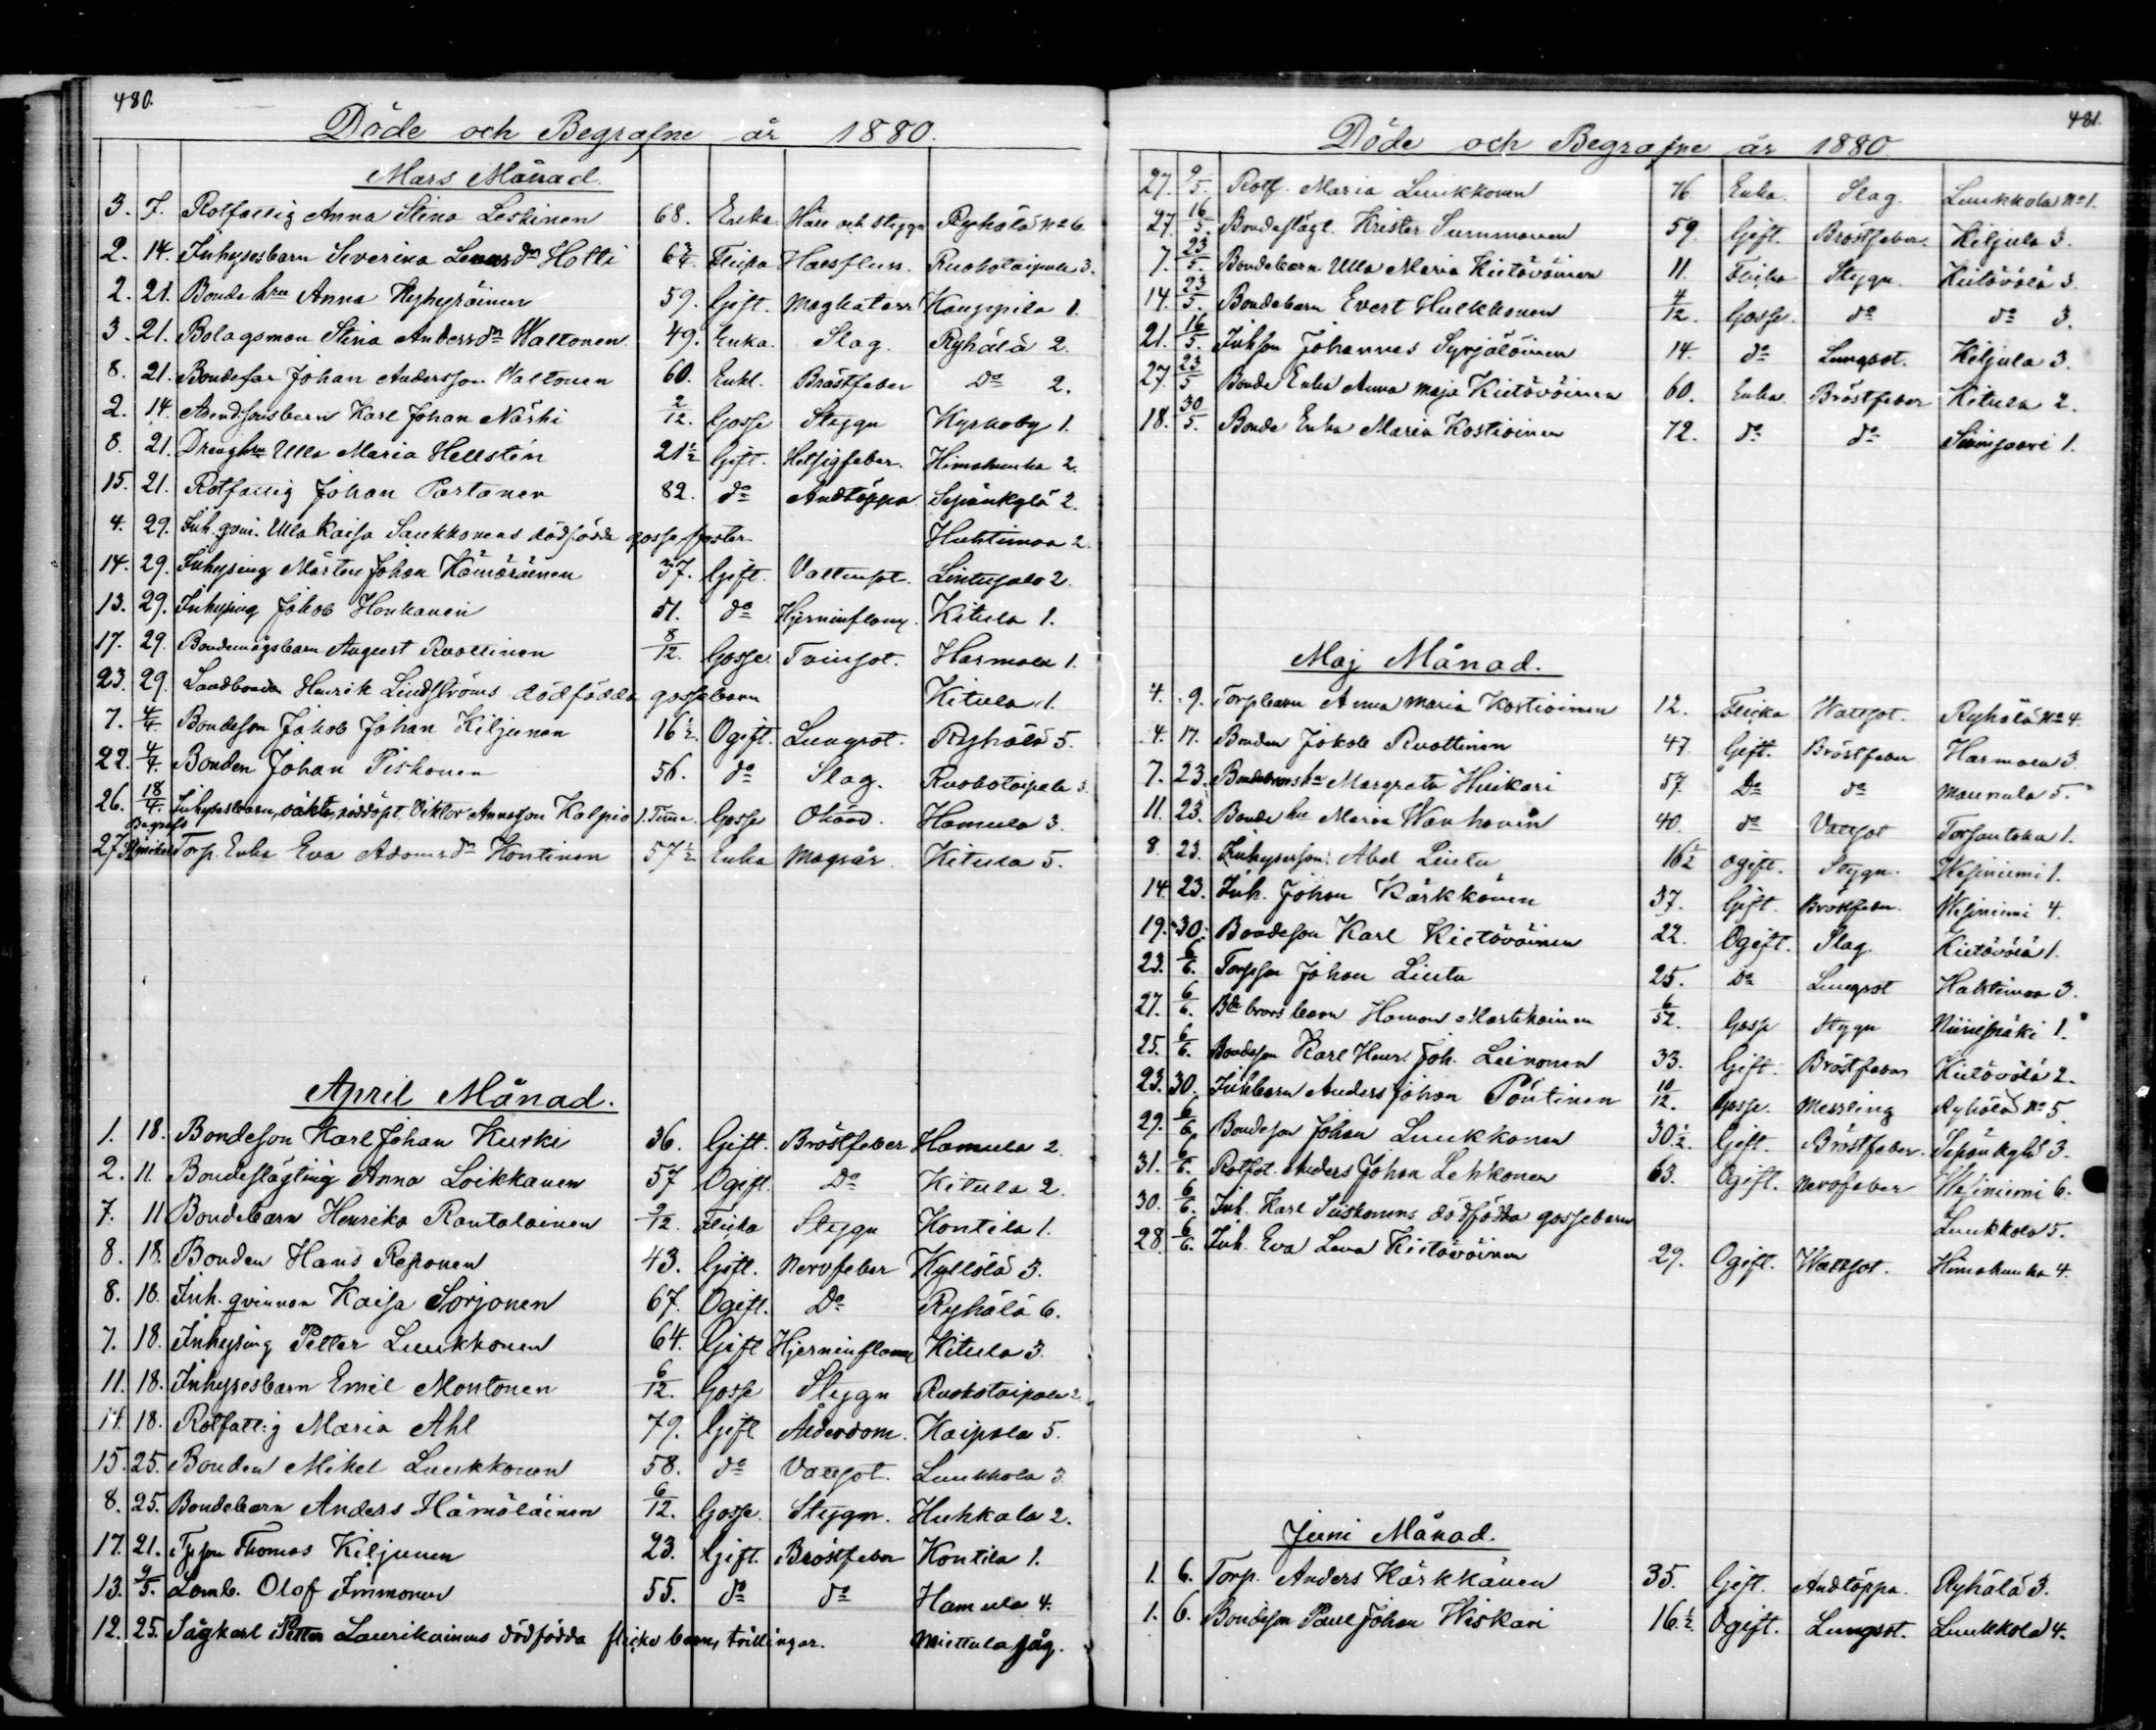 480.
Döde och Begrafne år 1880.
Mars Månad.
3. 7. Rotfattig Anna Stina Leskinen 68. Enka. Håll och stygn Ryhälä No 6.
2. 14. Inhysesbarn Severina Hotti Flicka Halsfluss. Ruokotaipale 3.
2. 21. Bonde hru Anna 59. Gift. Magkatarr Kauppila 1.
3. 21. Bolagsman Stina Andersdr Waltonen 49. Enka. Slag. Ryhälä 2.
8. 21. Bondefar Johan Andersson Waltonen 60. Enkl. Bröstfeber Do 2.
2. 14. Karl Johan Näski 2/12. Gosse Stygn Kyrkoby 1.
8. 21. Dräng hru Ulla Maria Hellstén 21 1/2 Gift. Hetsigfeber. Himahuuha 2.
15. 21. Rotfattig Johan Partanen 82. do Andtäppa Sepänkylä 2.
4. 29. Inh. qvin. Ulla Kaisa Saukkonens dödfödda gosse foster. Huhtimaa 2.
14. 29. Inhysing Mårten Johan Hämäräinen 37. Gift. Vattusot. Lintusalo 2.
13. 29. Inhysing Jakob Honkanen 51. do Hjerninflam. Kitula 1.
17. 29. Bondemågsbarn August Ruottinen 8/12. Gosse. Tvinsot. Harmala 1.
23. 29. Landbonden Henrik Lindströms dödfödda gossebarn Kitula 1.
7. 4/4. Bondeson Jakob Johan Kiljunen 16 1/2. Ogift. Lungsot. Ryhälä 5.
22. 4/4. Bonden Johan Piskonen 56. do Slag. Ruokotaipale 3.
26. 18/4. Inhysesbarn, oäkta, nöddöpt. Viktor Annason Kalpio 1. Timma. Gosse Okänd. Hamula 3.
27. Begrafd Torp. Enka Eva Adamsdr Kontinen 57 1/2 Enka Magsår. Kitula 5.
April Månad.
1. 18. Bondeson Karl Johan Kurki 36. Gift. Bröstfeber Hamula 2.
2. 11. Bondeslägting Anna Loikkanen 57 Ogift. Do Kitula 2.
7. 11 Bondebarn Henrika Rantalainen 9/12. Flicka Stygn Kontila 1.
8. 18. Bonden Hans Reponen 43. Gift. Nervfeber Kyllölä 3.
8. 18. Inh. qvinnan Kaisa Sorjonen 67. Ogift. Do Ryhälä 6.
7. 18. Inhysing Petter Luukkonen 64. Gift Hjerninflamm Kitula 3.
11. 18. Inhysesbarn Emil Montonen 6/12. Gosse Stygn Ruokotaipale 2.
11. 18. Rotfattig Maria Ahl 79. Gift Ålderdom. Kaipola 5.
15. 25. Bonden Mikel Luukkonen 58. do Vattsot. Luukkola 3.
8. 25. Bondebarn Anders Hämäläinen 6/12. Gosse. Stygn. Huhkala 2.
17. 21. Thomas Kiljunen 23. Gift. Bröstfeber Kontila 1.
13. 9/5. Lamb. Olof Immonen 55. do do Hamula 4.
12. 25. Sågkarl Petter Laurikainens dödfödda flicko barn, tvillingar. Miettula såg.
481.
Döde och Begrafne år 1880.
27. 9/5. Rotf. Maria Luukkonen 76 Enka. Slag. Luukkola No 1.
27. 16/5. Bondeslägt. Krister Summanen 59. Gift. Bröstfeber. Kiljula 3.
7. 23/5. Bondebarn Ulla Maria Kietäväinen 11. Flicka Stygn. Kiitävälä 3.
14. 23/5. Bondebarn Evert Hulkkonen 4/12. Gosse. do do 3.
21. 16/5. Inhson Johannes Syrjäläinen 14. do Lungsot. Kiljula 3.
27. 23/5 Bonde Enka Anna Maja Kietäväinen 60. Enka. Bröstfeber Kitula 2.
18. 30/5. Bonde Enka Maria Kostiainen 72. do do 1.
Maj Månad.
4. 9. Torpbarn Anna Maria Kostiainen 12. Flicka Wattsot. Ryhälä No 4.
4. 17. Bonden Jakob Ruottinen 47. Gift. Bröstfeber Harmala 3
7. 23. Margreta Huikari 57. Do do Maunula 5.
11. 23. Bonde hu Maria Wanhanen 40. do Vattsot Torsantaka 1.
8. 23. Inhyseson Abel Lintu 16 1/2 Ogift. Stygn. Wesiniemi 1.
14. 23. Inh. Johan Kärkkäinen 37. Gift. Bröstfeber. Wesiniemi 4.
19. 30. Bondeson Karl Kietäväinen 22. Ogift. Slag. Kiitävälä 1.
23. 6/6. Torpson Johan Lintu 25. Do Lungsot Huhtimaa 3.
27. 6/6. Bde brors barn Herman Martikainen 6/52. Gosse Stygn Niinimäki 1.
25. 6/6. Bondeson Karl Henr. Joh. Leinonen 33. Gift. Bröstfeber Kiitävälä 2.
23. 30. Inhbarn Anders Johan Pöntinen 10/12. Gosse. Messling Ryhälä No 5.
29. 6/6. Bondeson Johan Luukkonen 30 1/2. Gift. Bröstfeber. Sepänkylä 3.
31. 6/6. Rotfat. Anders Johan Lehkonen 63. Ogift. Nervfeber Wesiniemi 6.
30. 6/6. Inh. Karl Siiskonens dödfödda gossebarn Luukkola 5.
28. 6/6. Inh. Eva Lena Kietäväinen 29. Ogift. Wattsot. Himahuuha 4.
Juni Månad.
1. 6. Torp. Anders Kärkkäinen 35. Gift. Andtäppa. Ryhälä 3.
1. 6. Bondeson Paul Johan Wiskari 16 1/2 Ogift. Lungsot. Luukkola 4.